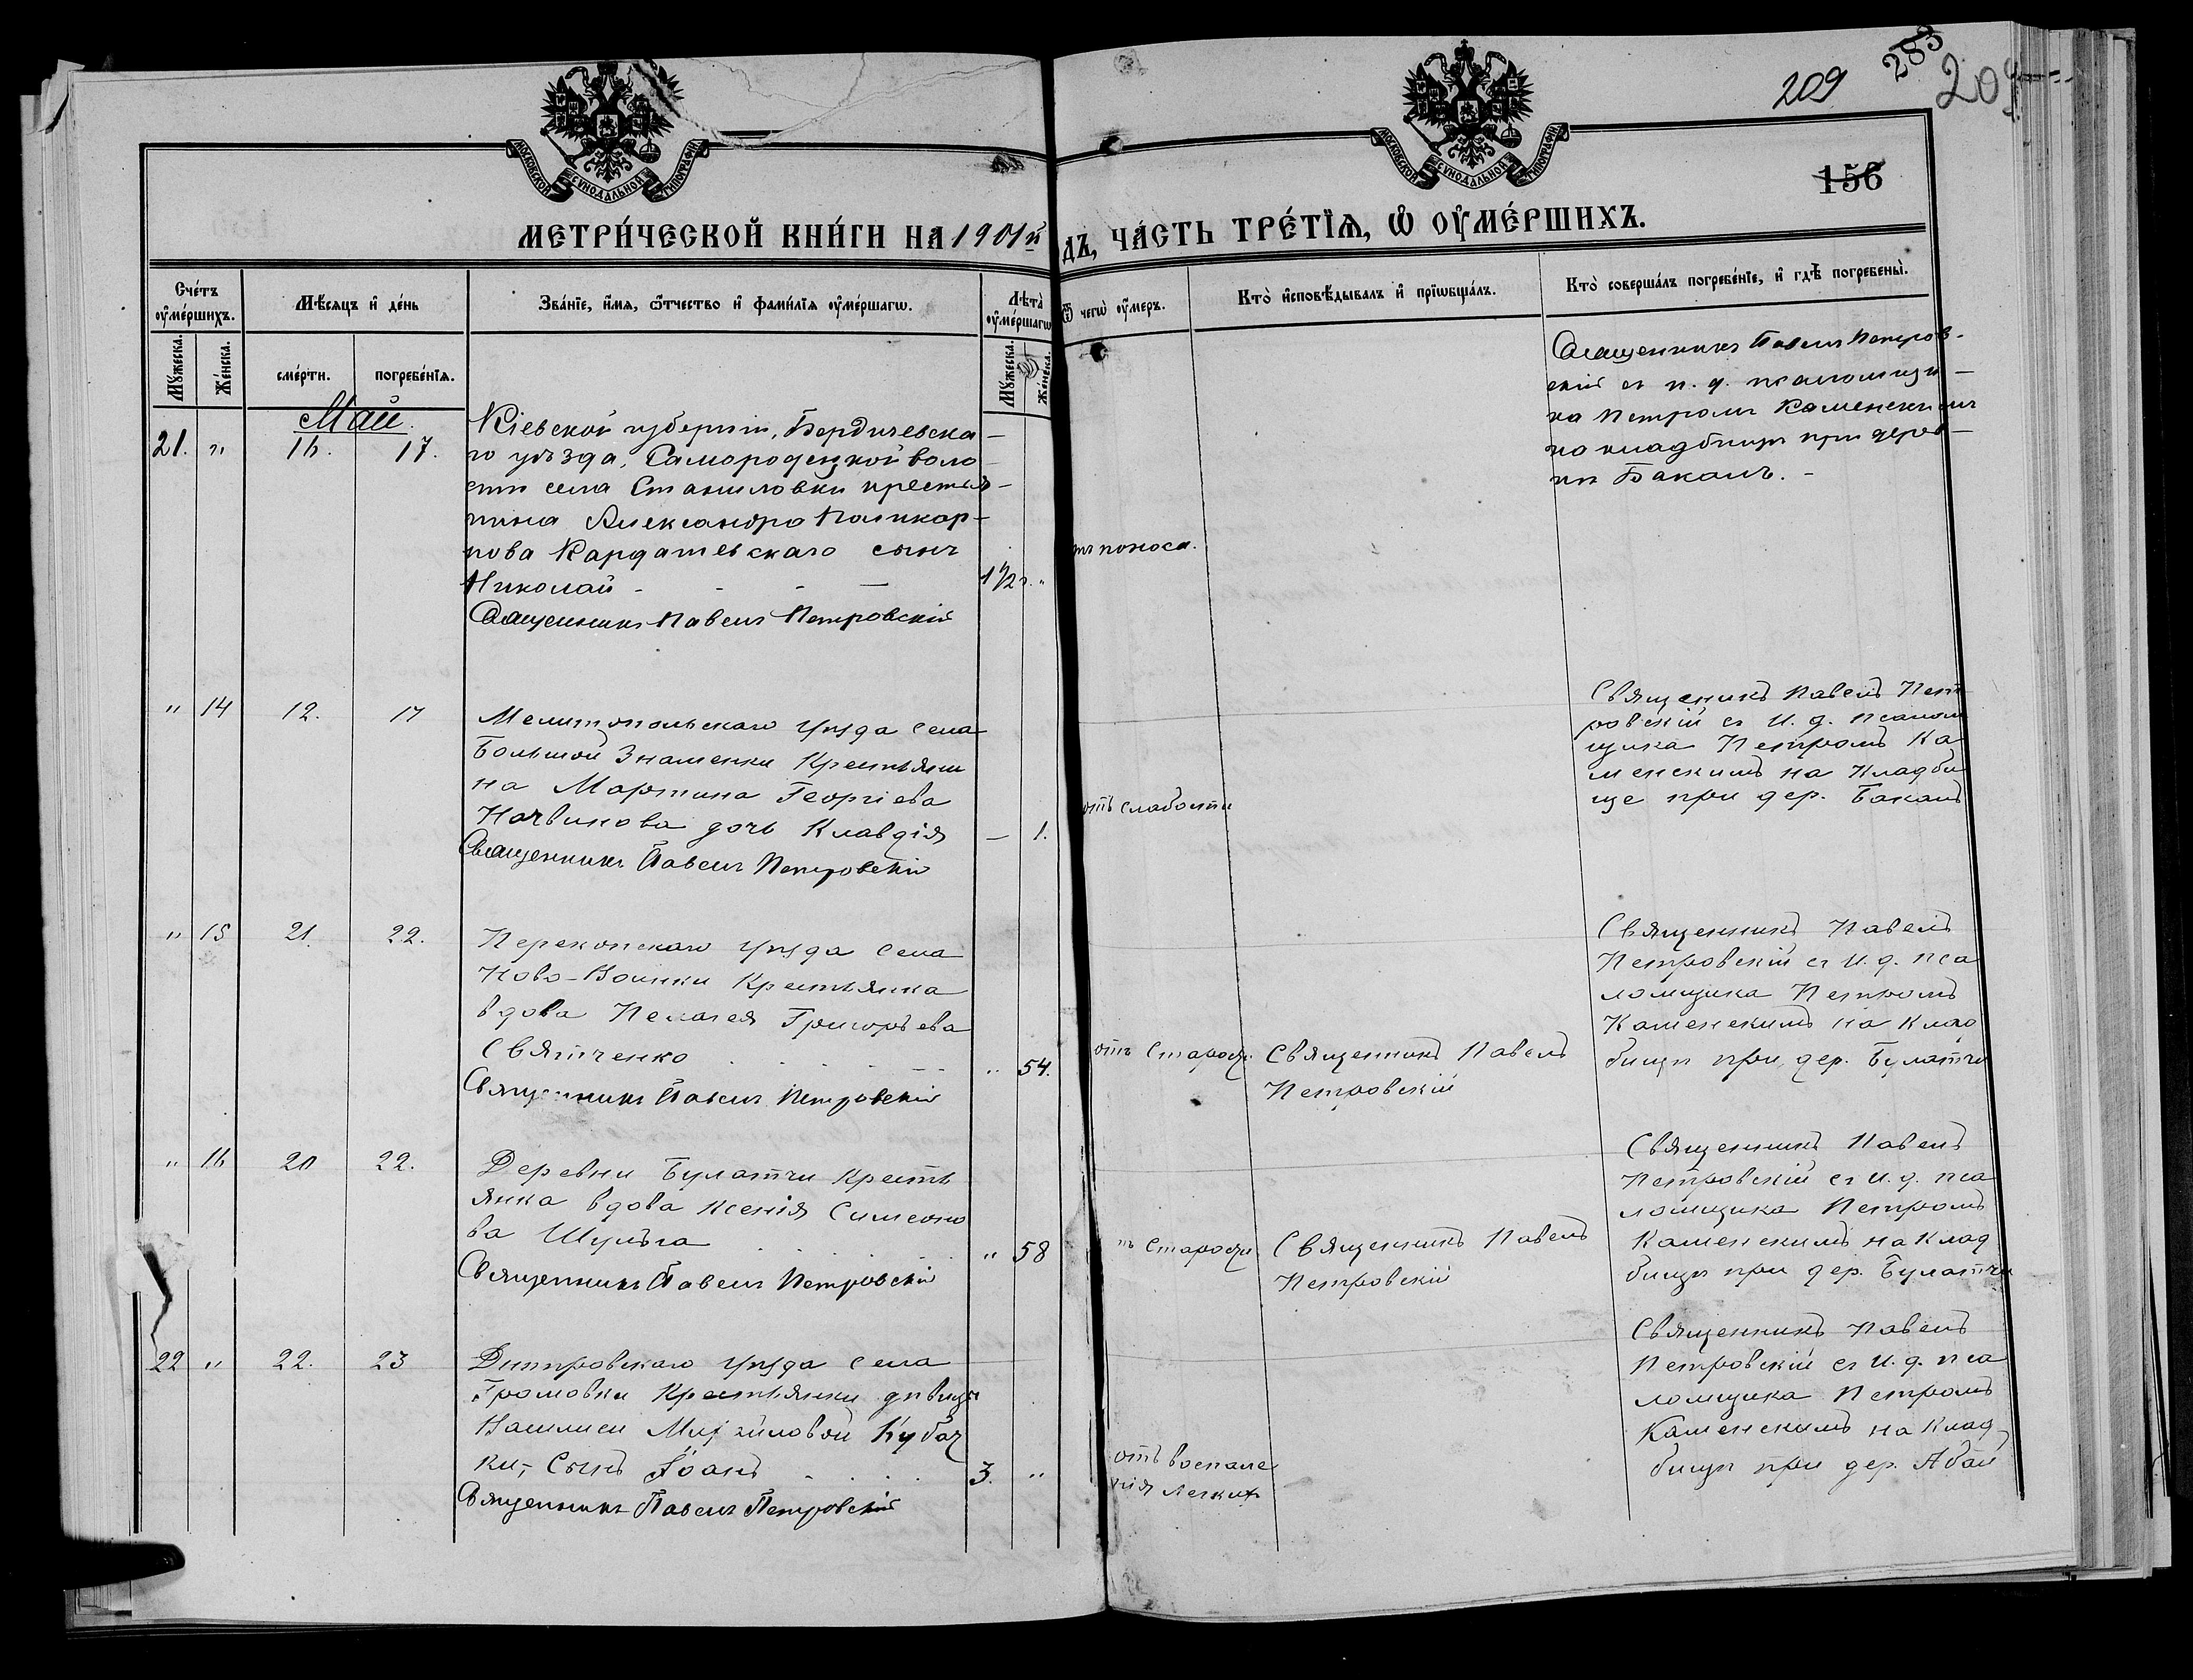 209
283
209
156
МОСКОВСКОЙ СѴНОДАЛЬНОЙ ТИПОГРАФІИ
МОСКОВСКОЙ СѴНОДАЛЬНОЙ ТИПОГРАФІИ
МЕТРИ́ЧЕСКОЙ КНИ́ГИ НА 1901й
ДЪ, ЧА́СТЬ ТРЕ́ТІѦ, Ѡ ОУМЕ́РШИХЪ.
Сче́тъ оуме́ршихъ.
Мѣ́сѧцъ и де́нь
Зва́ніе, и́мѧ, ѻ́тчество и фами́лїѧ оуме́ршагѡ.
Лѣта̀ оуме́ршагѡ
Ѿ чегѡ̀ оу́меръ.
Кто̀ исповѣ́дывалъ и прїѡбща́лъ.
Кто̀ соверша́лъ погребе́нїе, и гдѣ̀ погребены̀.
Мꙋ́жеска.
Же́неска.
сме́рти.
погребе́нїѧ.
Мꙋ́жеска.
Же́неска.
Май.
21. " 16. 17.
Кіевской губерніи, Бердичевска-
го уѣзда, Самородецкой воло-
сти села Станиловки крестья-
нина Александра Поликар-
пова Кардашевскаго сынъ
Николай - - - —
1 1/2 г. "
Священникъ Павелъ Петровскій
тъ поноса.
Священникъ Павелъ Петров-
скій съ и. д. псаломщи-
ка Петромъ Каменскимъ
на кладбищѣ при дерев-
нѣ Бакалъ. -
" 14 12. 17
Мелитопольскаго уѣзда села
Большой Знаменки Крестьяни
на Мартина Георгіева
Начвинова дочь Клавдія
— 1.
Священникъ Павелъ Петровскій
отъ слабости
Священикъ Павелъ Пет
ровскій съ И. д. псалом
щика Петромъ Ка
менскимъ на Кладби
ще при дер. Бакалъ
" 15 21. 22.
Перекопскаго уѣзда села
Ново-Воинки Крестьянка
вдова Пелагея Григорьева
Святченко
" 54.
Священникъ Павелъ Петровскій
отъ Старости.
Священникъ Павелъ
Петровскій
Священникъ Павелъ
Петровскій съ И. д. пса
ломщика Петромъ
Каменскимъ на Клад
бищѣ при дер. Булатчи
" 16 20 22.
Деревни Булатчи Кресть
янка вдова Ксенія Симеоно
ва Шульга
" 58
Священникъ Павелъ Петровскій
тъ Старости
Священникъ Павелъ
Петровскій
Священникъ Павелъ
Петровскій съ И. д. пса
ломщика Петромъ
Каменскимъ на Клад
бищѣ при дер. Булатчи
22 " 22. 23
Дніпровскаго уѣзда села
Громовки Крестьянки дѣвицы
Михайловой Кубач
ки, Сынъ Іоанъ
3. "
Священникъ Павелъ Петровскій
отъ воспале
нія легких
Священникъ Павелъ
Петровскій съ И. д. пса
ломщика Петромъ
Каменскимъ на Клад
бищѣ при дер. Абаи